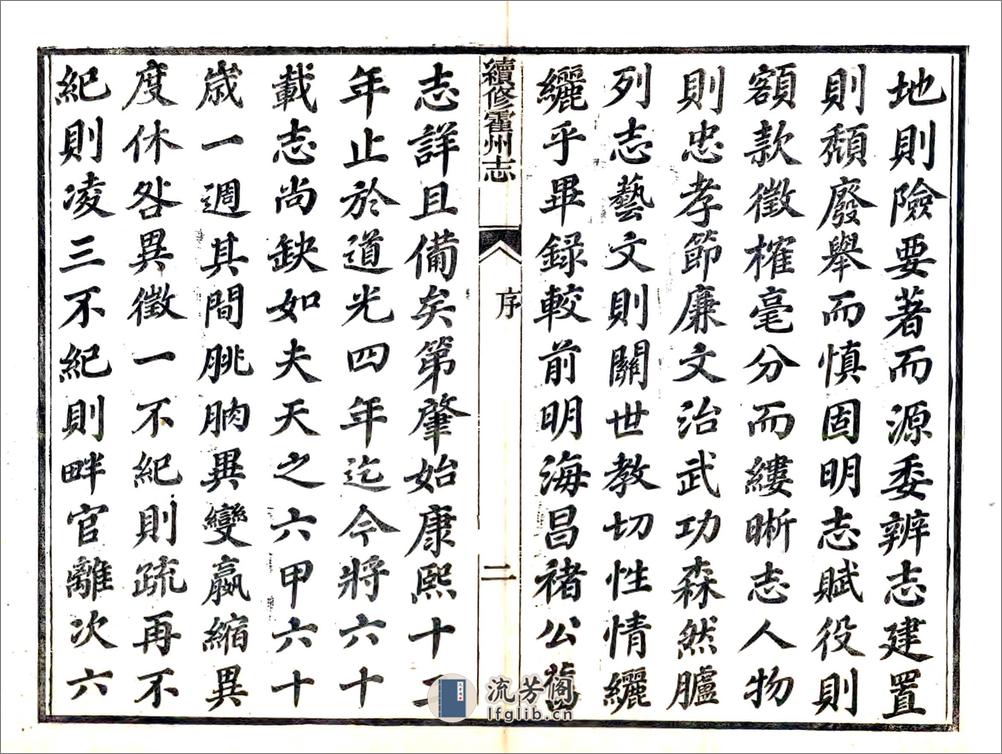 地則險要著而源委辨志建置
則頹廢舉而慎固明志賦役則
額款徵榷毫分而縷晰志人物
則忠孝節廉文治武功森然臚
列志藝文則關世教切性情纚
纚乎畢録較前明海昌禇公
續修霍州志 序 二
志詳且備矣第肇始康熙十二
年止於道光四年迄今將六十
載志尚缺如夫天之六甲六十
歲一週其間朓朒異變嬴縮異
度休咎異徵一不紀則疏再不
紀則凌三不紀則畔官離次六
流芳阁
lfglib.cn